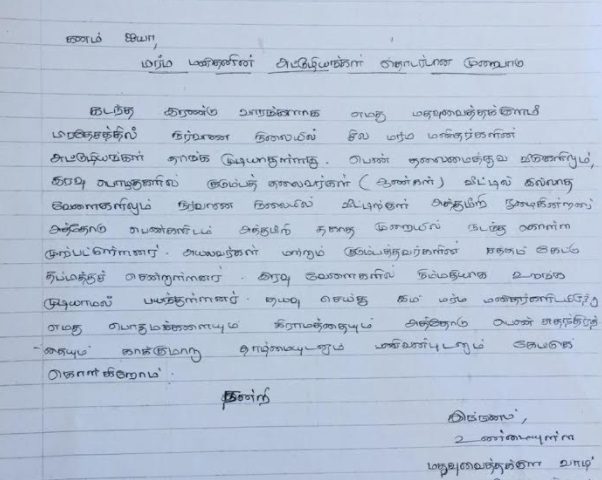 கனம் ஐயா,
மர்ம மனிதனின் அட்டூழியங்கள் தொடர்பான முறைபாடு
கடந்த இரண்டு வாரங்களாக எமது மதுவைத்தகுளம்
பிரதேசத்தில் நிர்வாண நிலையில் சில மர்ம மனிதர்களின்
அட்டூழியங்கள் தாங்க முடியாதுள்ளது. பெண் தலைமைத்துவ வீடுகளிலும்,
இரவு பொழுதுகளில் குடும்பத் தலைவர்கள் (ஆண்கள்) வீட்டில் இல்லாத
வேளைகளிலும் நிர்வாண நிலையில் வீட்டிற்குள் அத்துமீறி நுழைகின்றனர்
அத்தோடு பெண்களிடம் அத்துமீறி தகாத முறையில் நடந்து கொள்ள
முற்பட்டுள்ளனர். அயலவர்கள் மற்றும் குடும்பத்தவர்களின் சத்தம் கேட்டு
தப்பித்துச் சென்றுள்ளனர். இரவு வேளைகளில் நிம்மதியாக உறங்க
முடியாமல் பயந்துள்ளனர். தயவு செய்து இம் மர்ம மனிதர்களிடமிருந்து
எமது பொதுமக்களையும் கிராமத்தையும் அத்தோடு பெண் சுதந்திரத்
தையும் காக்குமாறு தாழ்மையுடனும் பணிவன்புடனும் கேட்டுக்
கொள்கிறோம்.
நன்றி
இங்ஙனம்,
உண்மையுள்ள